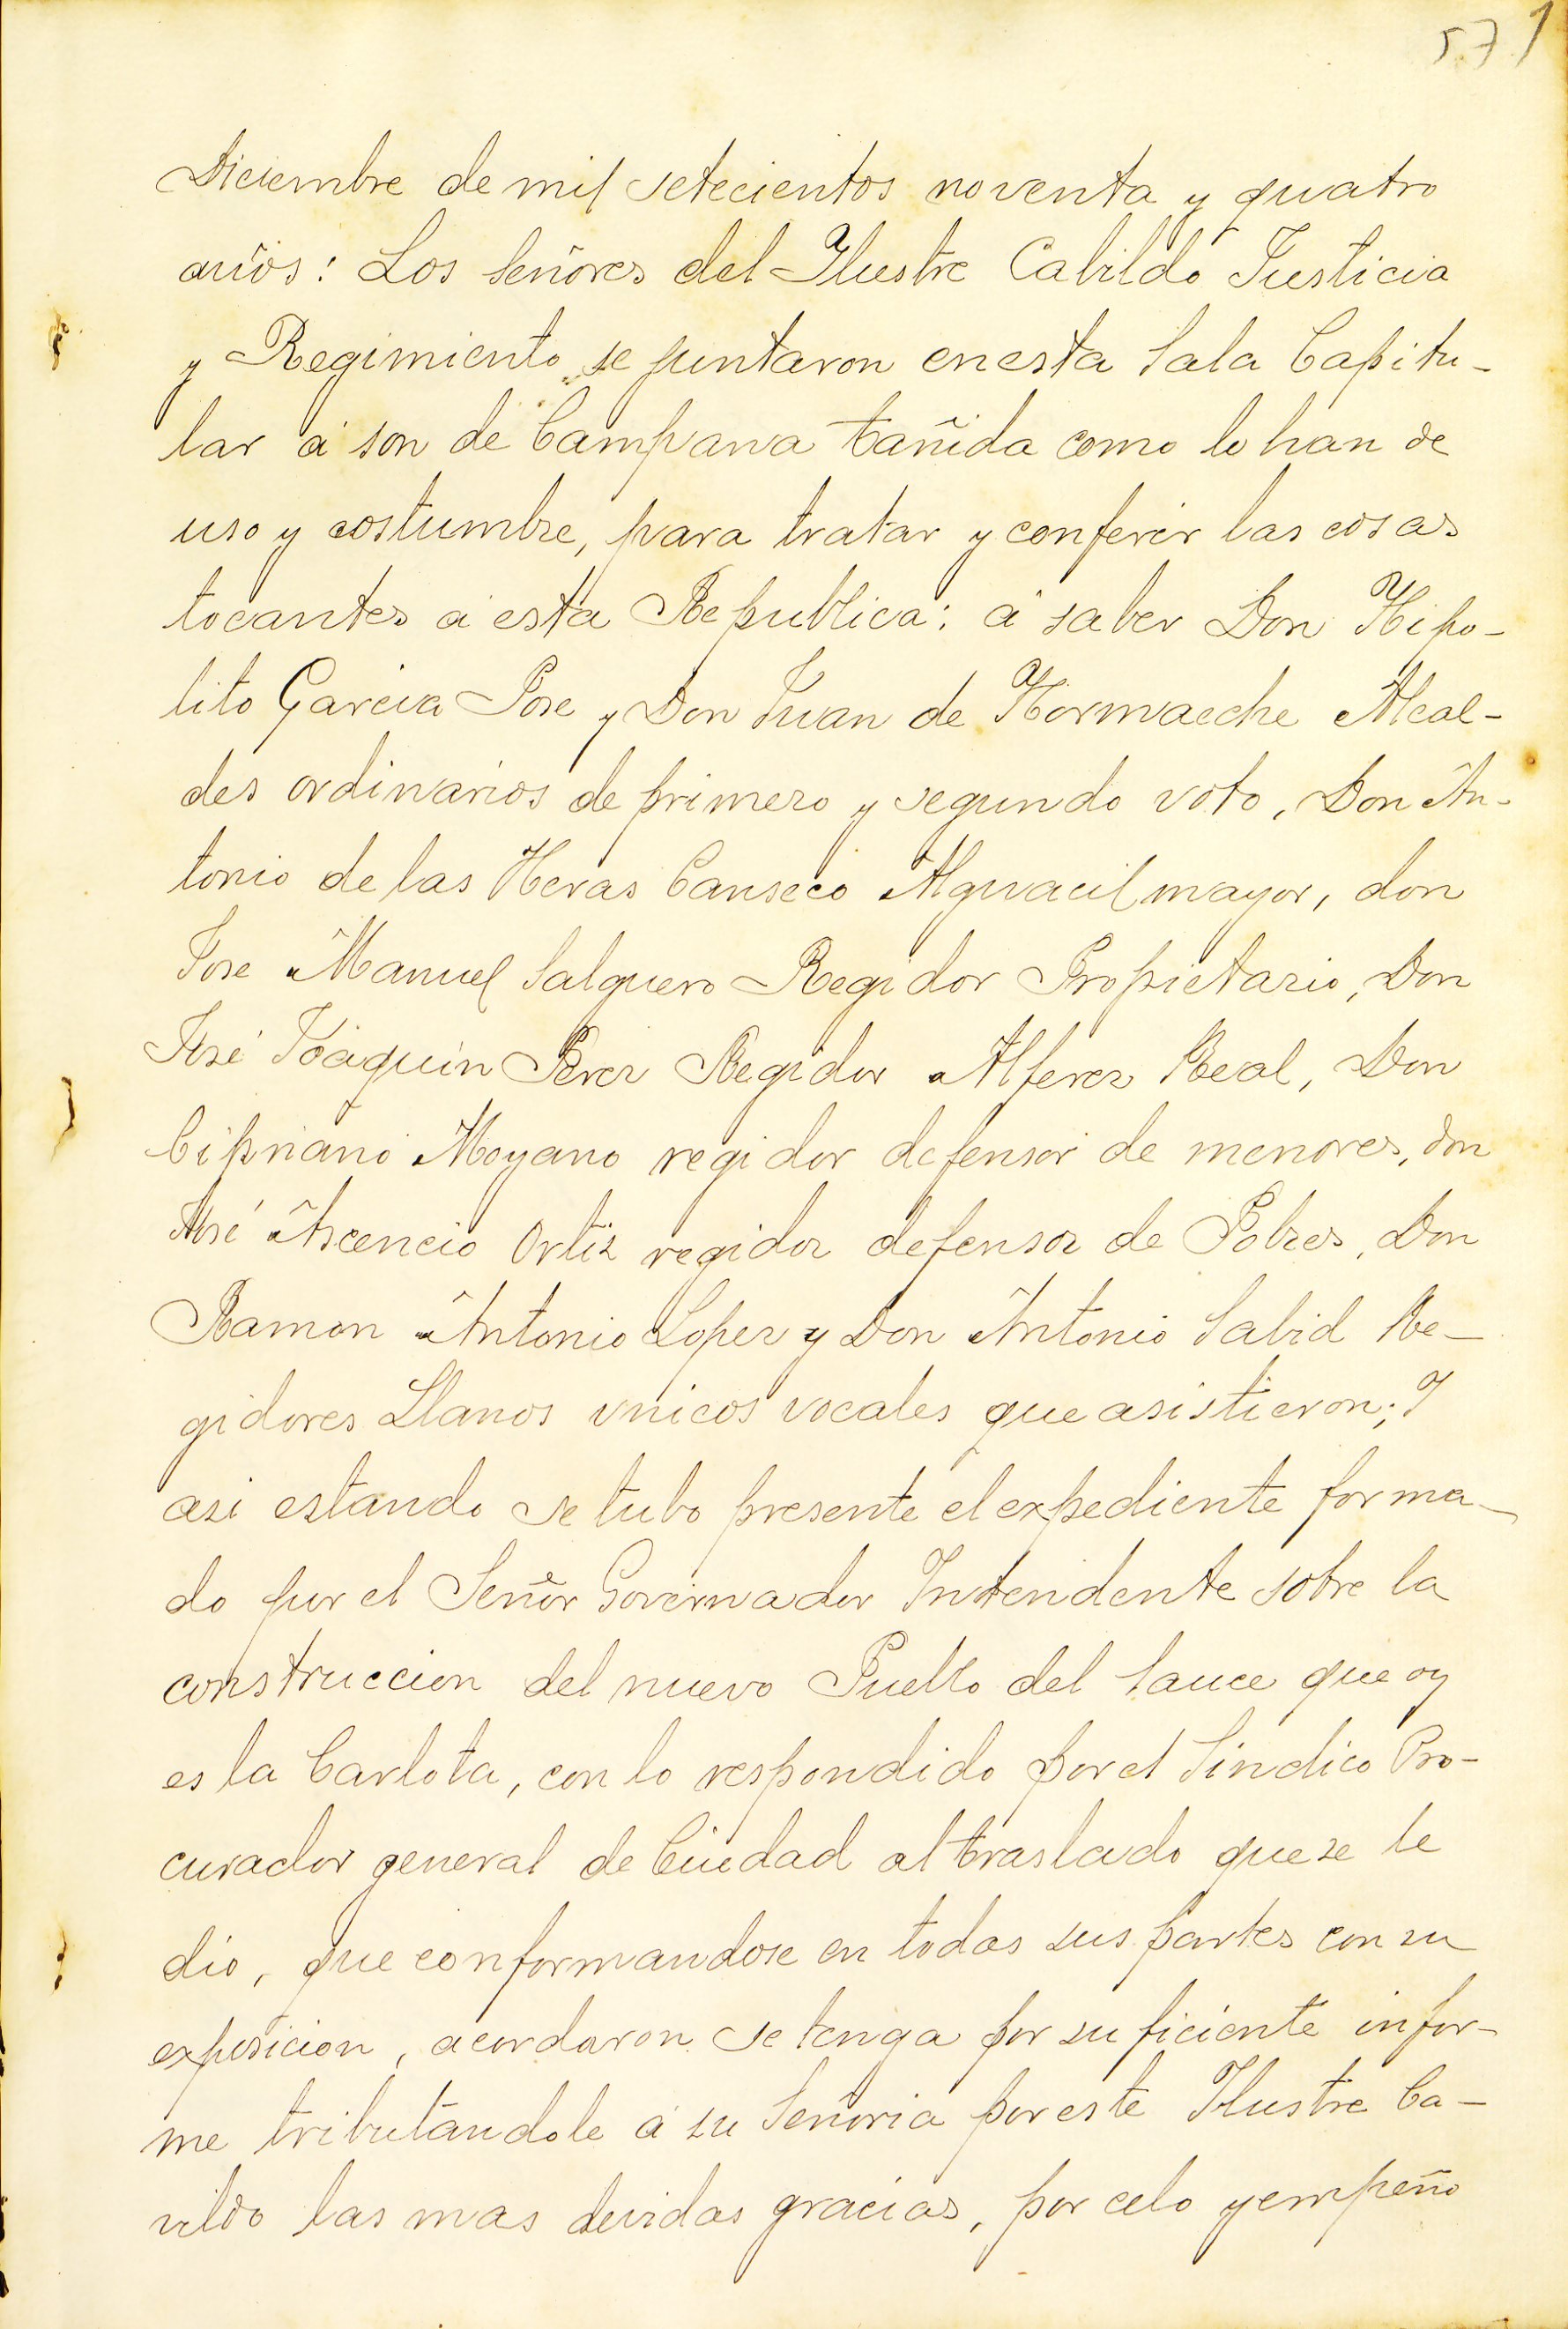 571
Diciembre de mil setecientos noventa y quatro
años: Los Señores del Ylustre Cabildo Justicia
y Regimiento se juntaron enesta Sala Capitu-
lar á son de Campana tañida como lo han de
uso y costumbre, para tratar y conferir las cosas
tocantes á esta Republica: á saber Don Hipo-
lito Garcia Pose y Don Juan de Hormaeche Alcal-
des ordinarios de primero y segundo voto, Don An-
tonio de las Heras Canseco Alguacil mayor, don
Jose Manuel Salguero Regidor Propietario, Don
José Joaquin Perez Regidor Alferez Real, Don
Cipriano Moyano regidor defensor de menores, don
José Ascencio Ortiz regidor defensor de Pobres, Don
Ramon Antonio Lopez y Don Antonio Sabid Re-
gidores Llanos vnicos vocales que asistieron; Y
asi estando se tubo presente el expediente forma-
do por el Señor Governador Intendente sobre la
construccion del nuevo Pueblo del Sauce que oy
es la Carlota, con lo respondido por el Sindico Pro-
curador general de Ciudad al traslado que se le
dio, que conformandose en todas sus partes con su
exposicion, acordaron se tenga por suficiente infor-
me tributandole á su Señoria por este Ilustre Ca-
vildo las mas devidas gracias, por celo y empeño